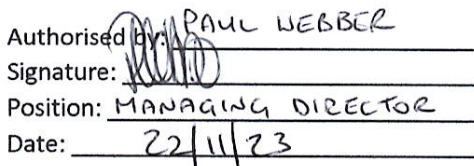 Authorised by: PAUL WEBBER
Signature:
Position: MANAGING DIRECTOR
Date: 22/11/23